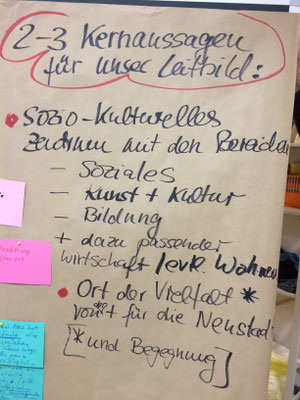 2-3 Kernaussagen
für unser Leitbild:
• Sozio-Kulturelles
Zentrum mit den Bereichen
- Soziales
- Kunst + Kultur
- Bildung
+ dazu passender
Wirtschaft / evtl. Wohnen
• Ort der Vielfalt *
von + für die Neustadt
[* und Begegnung]